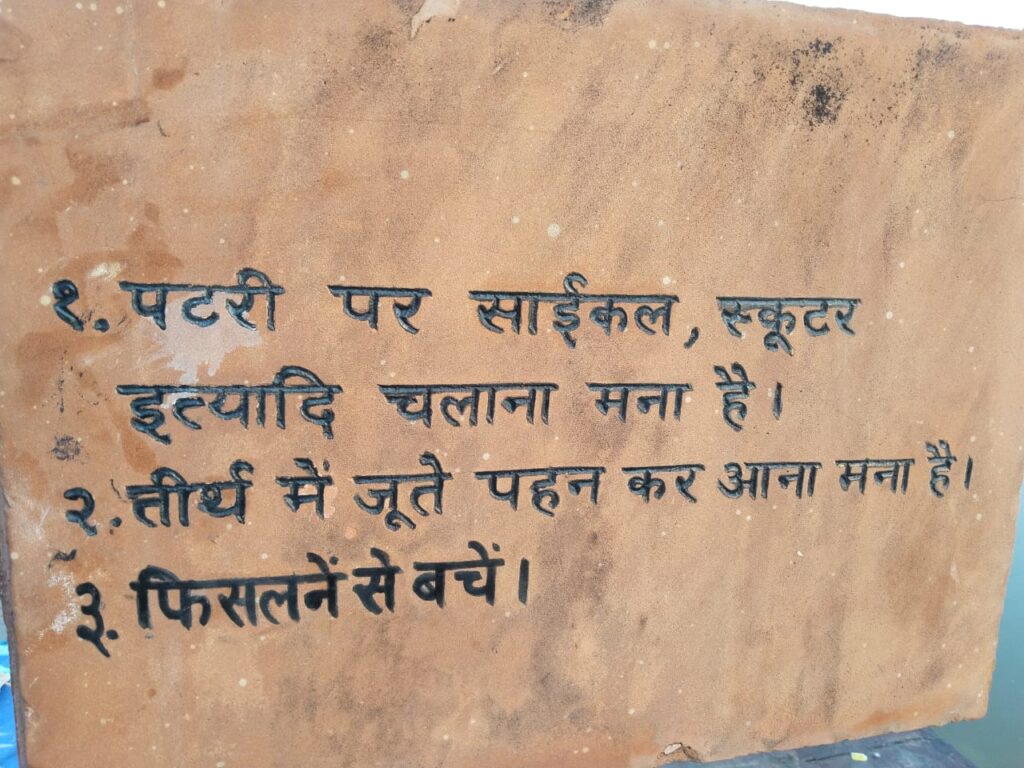 १. पटरी पर साईकल, स्कूटर
इत्यादि चलाना मना है।
२. तीर्थ में जूते पहन कर आना मना है।
३. फिसलनें से बचें।